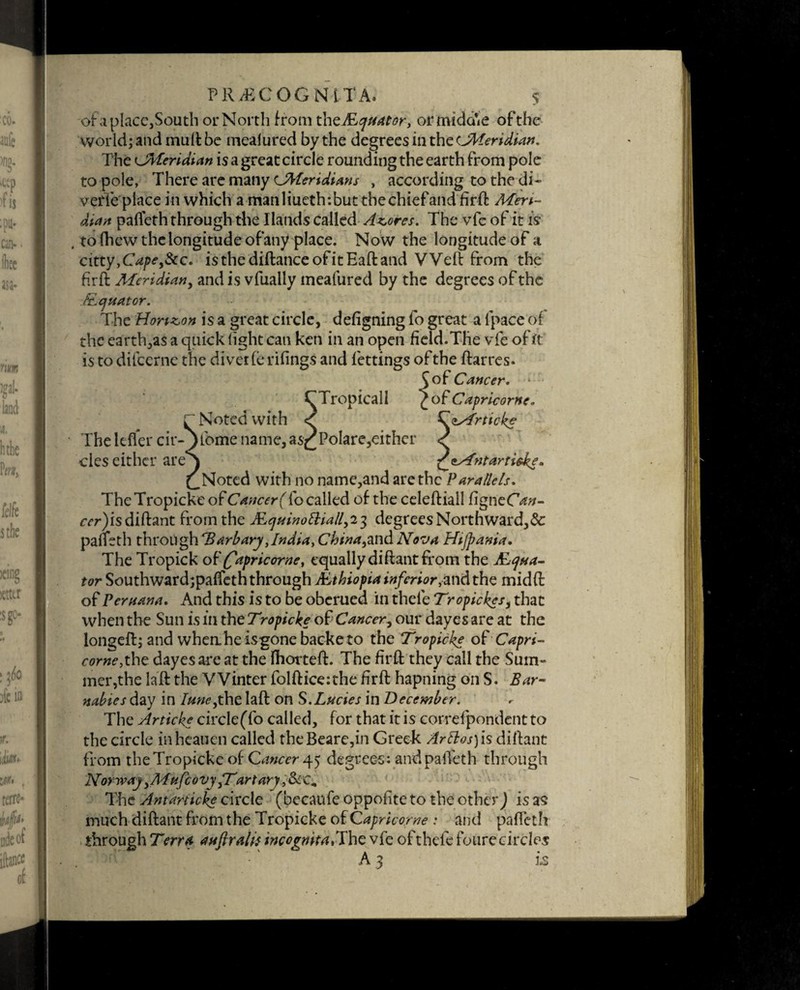 PRÆCOGNITA. 5
of a place, South or North from the Æquator, or middle of the
world; and must be measured by the degrees in the Meridian.
The Meridian is a great circle rounding the earth from pole
to pole. There are many Meridians , according to the di-
verse place in which a man liueth: but the chief and first Meri-
dian passeth through the Ilands called Azores. The vse of it is
to shew the longitude of any place. Now the longitude of a
citty, Cape, &c. is the distance of it East and VVest from the
first Meridian, and is vsually measured by the degrees of the
Æquator.
The Horizon is a great circle, designing so great a space of
the earth, as a quick sight can ken in an open field. The vse of it
is to discerne the diverse risings and settings of the starres.
of Cancer.
Tropicall of Capricorne.
Noted with Articke
The lesser cir- some name, as Polare, either
cles either are Antarticke.
Noted with no name, and are the Parallels.
The Tropicke of Cancer (so called of the celestiall signe Can-
cer) is distant from the Æquinoctiall, 23 degrees Northward, &
passeth through Barbary, India, China, and Nova Hispania.
The Tropick of Capricorne, equally distant from the Æqua-
tor Southward; passeth through Æthiopia inferior, and the midst
of Peruana. And this is to be obserued in these Tropickes, that
when the Sun is in the Tropicke of Cancer, our dayes are at the
longest; and when he is gone backe to the Tropicke of Capri-
corne, the dayes are at the shortest. The first they call the Sum-
mer, the last the VVinter solstice: the first hapning on S. Bar-
nabies day in Iune, the last on S. Lucies in December.
The Articke circle (so called, for that it is correspondent to
the circle in heauen called the Beare, in Greek Arctos) is distant
from the Tropicke of Cancer 45 degrees: and passeth through
Norway, Muscovy, Tartary, &c.
The Antarticke circle (because opposite to the other) is as
much distant from the Tropicke of Capricorne : and passeth
through Terra australis incognita. The vse of these foure circles
A 3 is